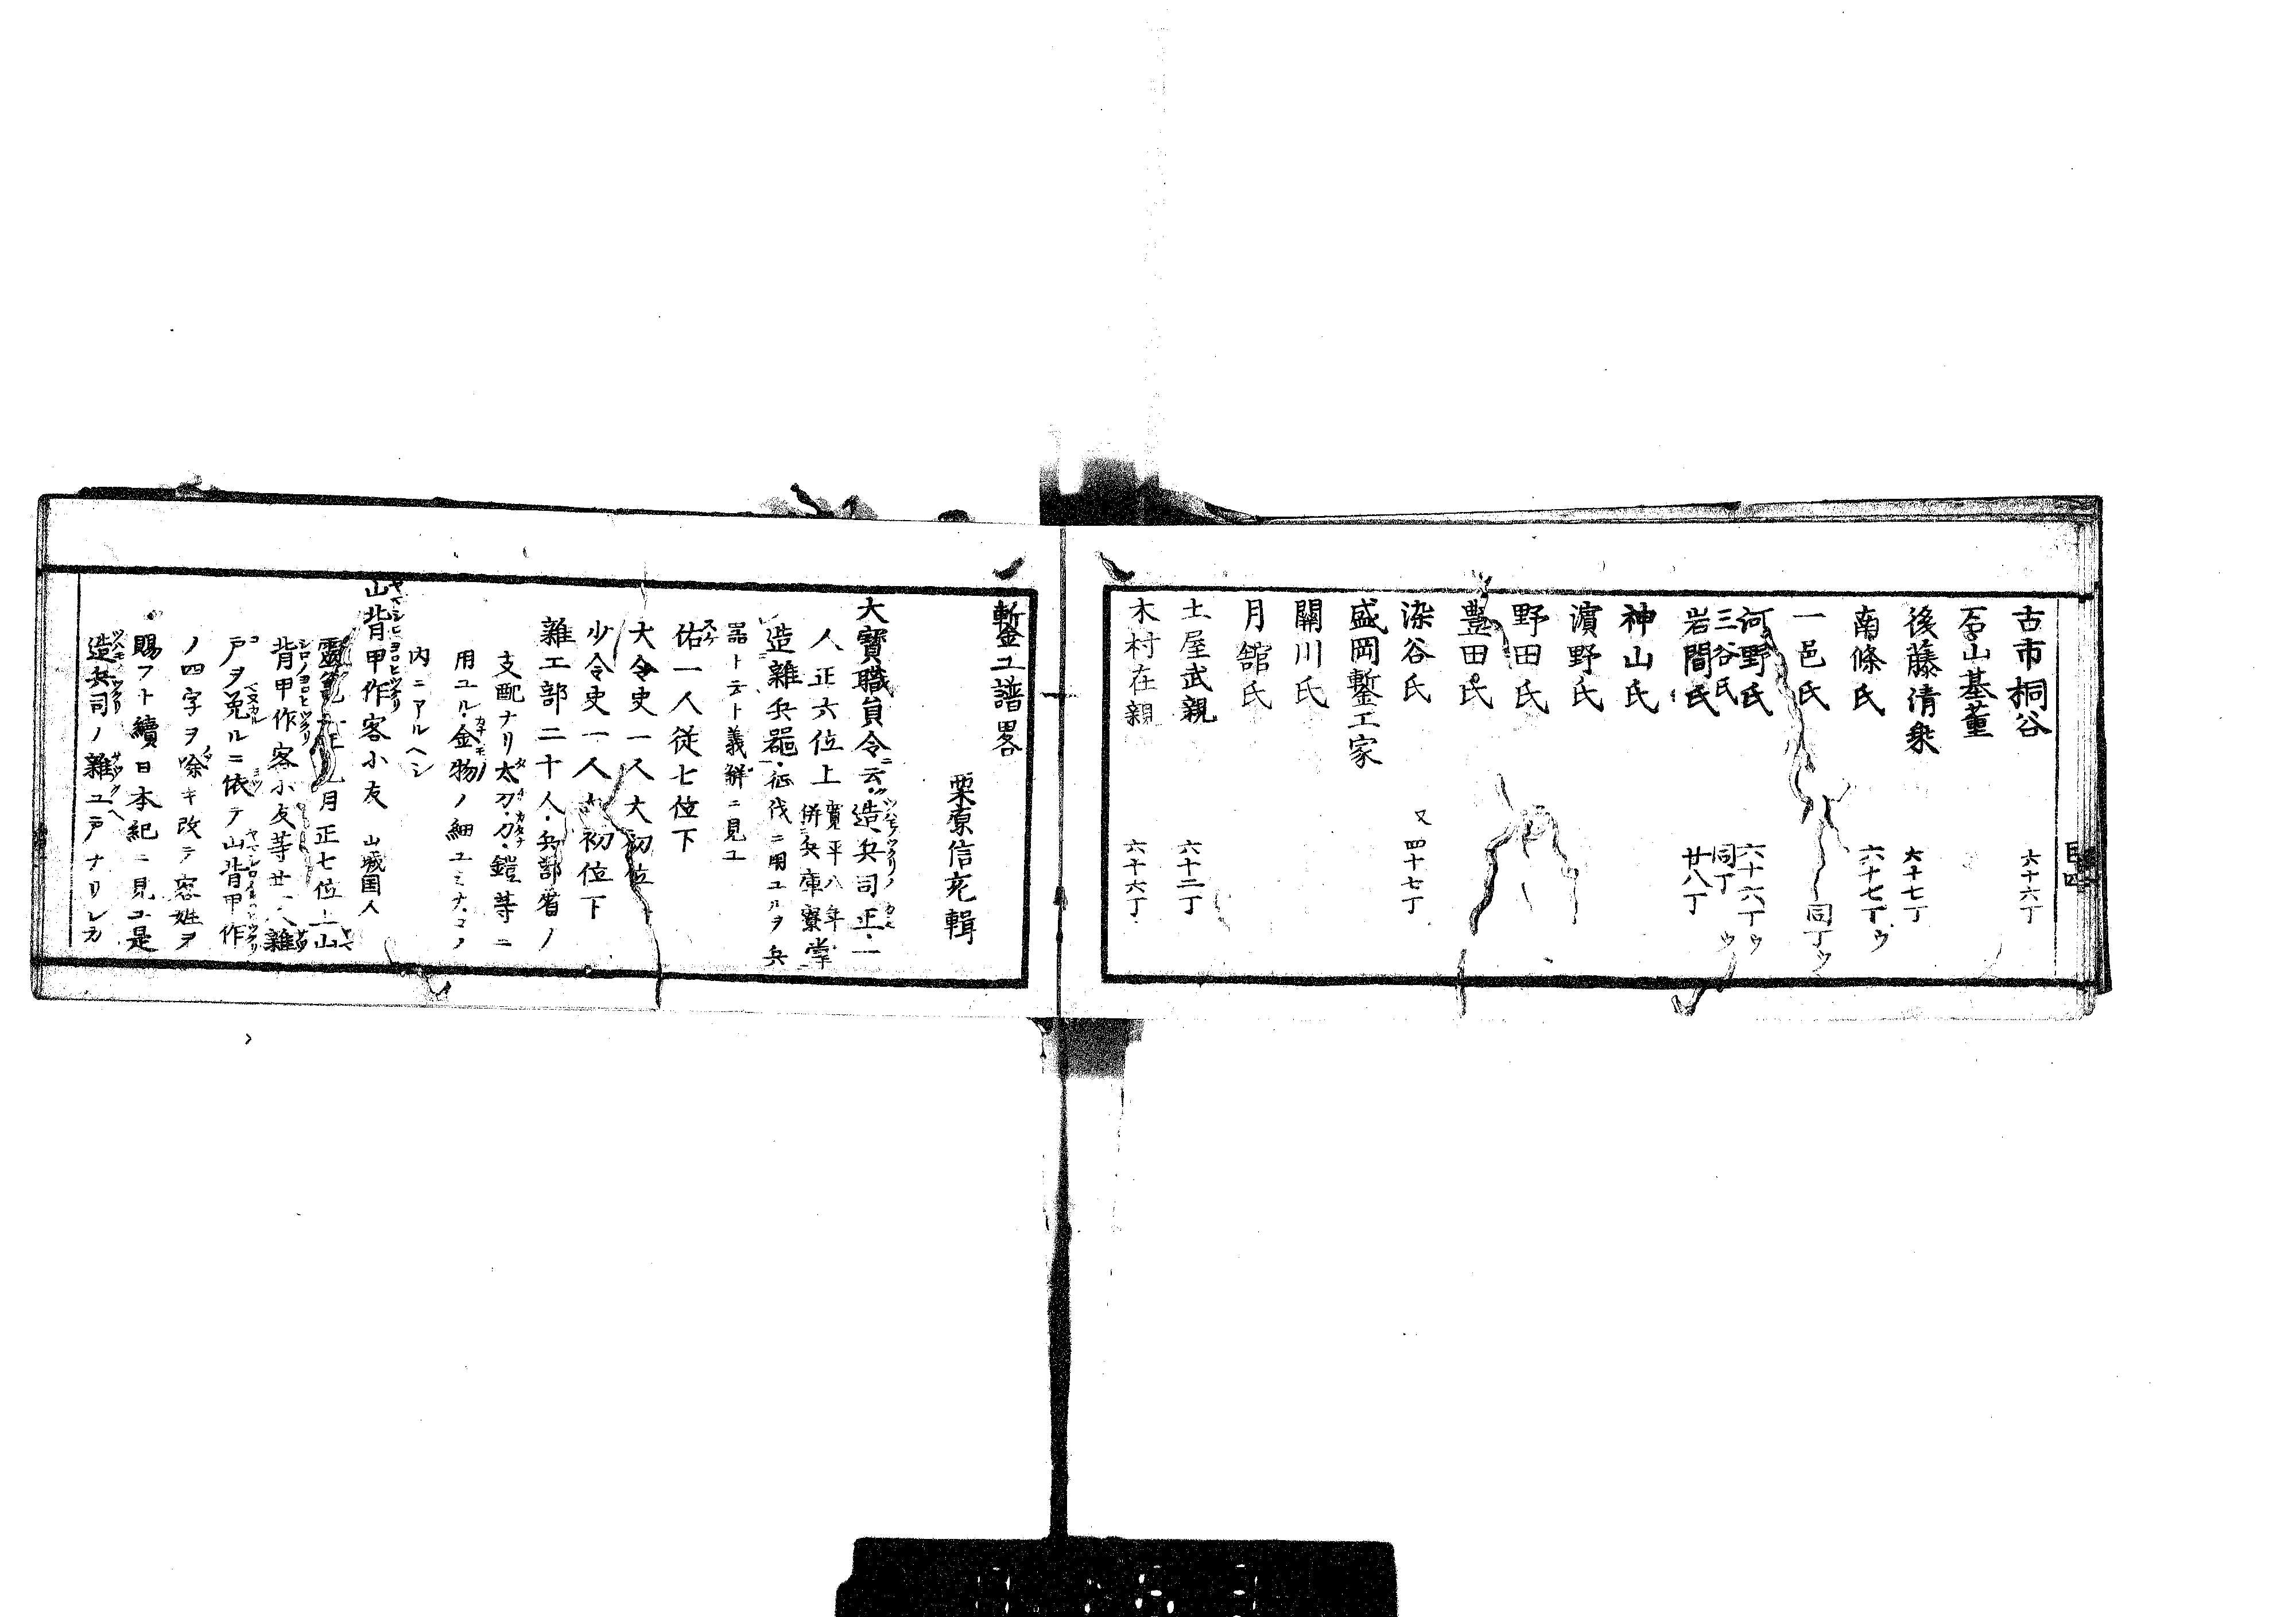 目四
古市桐谷 六十六丁
石山基董
後藤清乗 六十七丁
南條氏 六十七丁ウ
一邑氏 同丁ウ
河野氏 六十六丁ウ
三谷氏 同丁ウ
岩間氏 廿八丁
神山氏
濵野氏
野田氏
豊田氏
染谷氏 又四十七丁
盛岡鏨工家
關川氏
月舘氏
土屋武親 六十二丁
木村在親 六十六丁
鏨工譜畧
栗原信充輯
大寳職員令ニ云造兵司正一
人正六位上寛平八年併兵庫寮掌
造雜兵器征伐ニ用ユルヲ兵
器ト云ト義解ニ見ユ
佑一人従七位下
大令史一人大初位
少令史一人初位下
雜工部二十人兵部省ノ
支配ナリ太刀刀鎧等ニ
用ユル金物ノ細工ミナコノ
内ニアルヘシ
山背甲作客小友 山城国人
靈龜 月正七位上山
背甲作客小友等廿一人雜
戸ヲ免ルニ依テ山背甲作
ノ四字ヲ除キ改テ客姓ヲ
賜フト續日本紀ニ見ユ是
造兵司ノ雜工戸ナリシカ